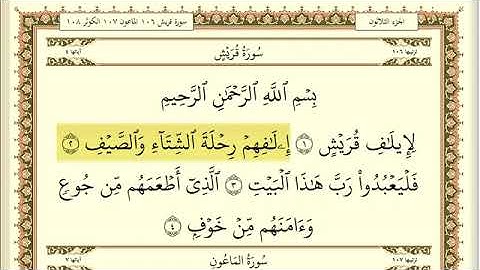 الجزء الثلاثون
سورة قريش ١٠٦ الماعون ١٠٧ الكوثر ١٠٨
ترتيبها ١٠٦
سُورَةُ قُرَيْشٍ
آياتها ٤
بِسْمِ ٱللَّهِ ٱلرَّحْمَٰنِ ٱلرَّحِيمِ
لِإِيلَٰفِ قُرَيْشٍ ١ إِۦلَٰفِهِمْ رِحْلَةَ ٱلشِّتَآءِ وَٱلصَّيْفِ ٢
فَلْيَعْبُدُوا۟ رَبَّ هَٰذَا ٱلْبَيْتِ ٣ ٱلَّذِىٓ أَطْعَمَهُم مِّن جُوعٍ
وَءَامَنَهُم مِّنْ خَوْفٍۭ ٤
ترتيبها ١٠٧
سُورَةُ ٱلْمَاعُونِ
آياتها ٧